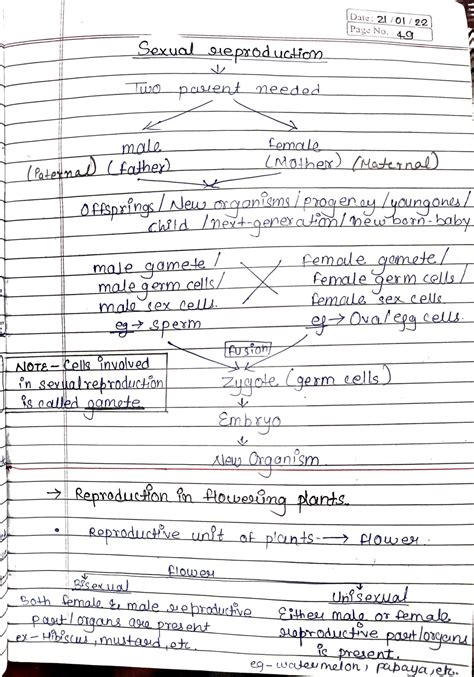 Date: 21/01/22
Page No. 49
Sexual reproduction
↓
Two parent needed
male female
(Paternal) (father) (Mother) (Maternal)
Offsprings/New organisms/progency/youngones/
child/next-generation/new born-baby
male gamete/ female gamete/
male germ cells/ female germ cells/
male sex cells. female sex cells
eg → sperm eg → Ova/egg cells.
fusion
NOTE - Cells involved
in sexual reproduction
is called gamete.
Zygote (germ cells)
↓
Embryo
↓
New Organism
→ Reproduction in flowering plants.
• Reproductive unit of plants → flower.
flower
Bisexual Unisexual
Both female & male reproductive Either male or female
part/organs are present reproductive part/organs
ex- Hibiscus, mustard, etc. is present.
eg- watermelon, papaya, etc.